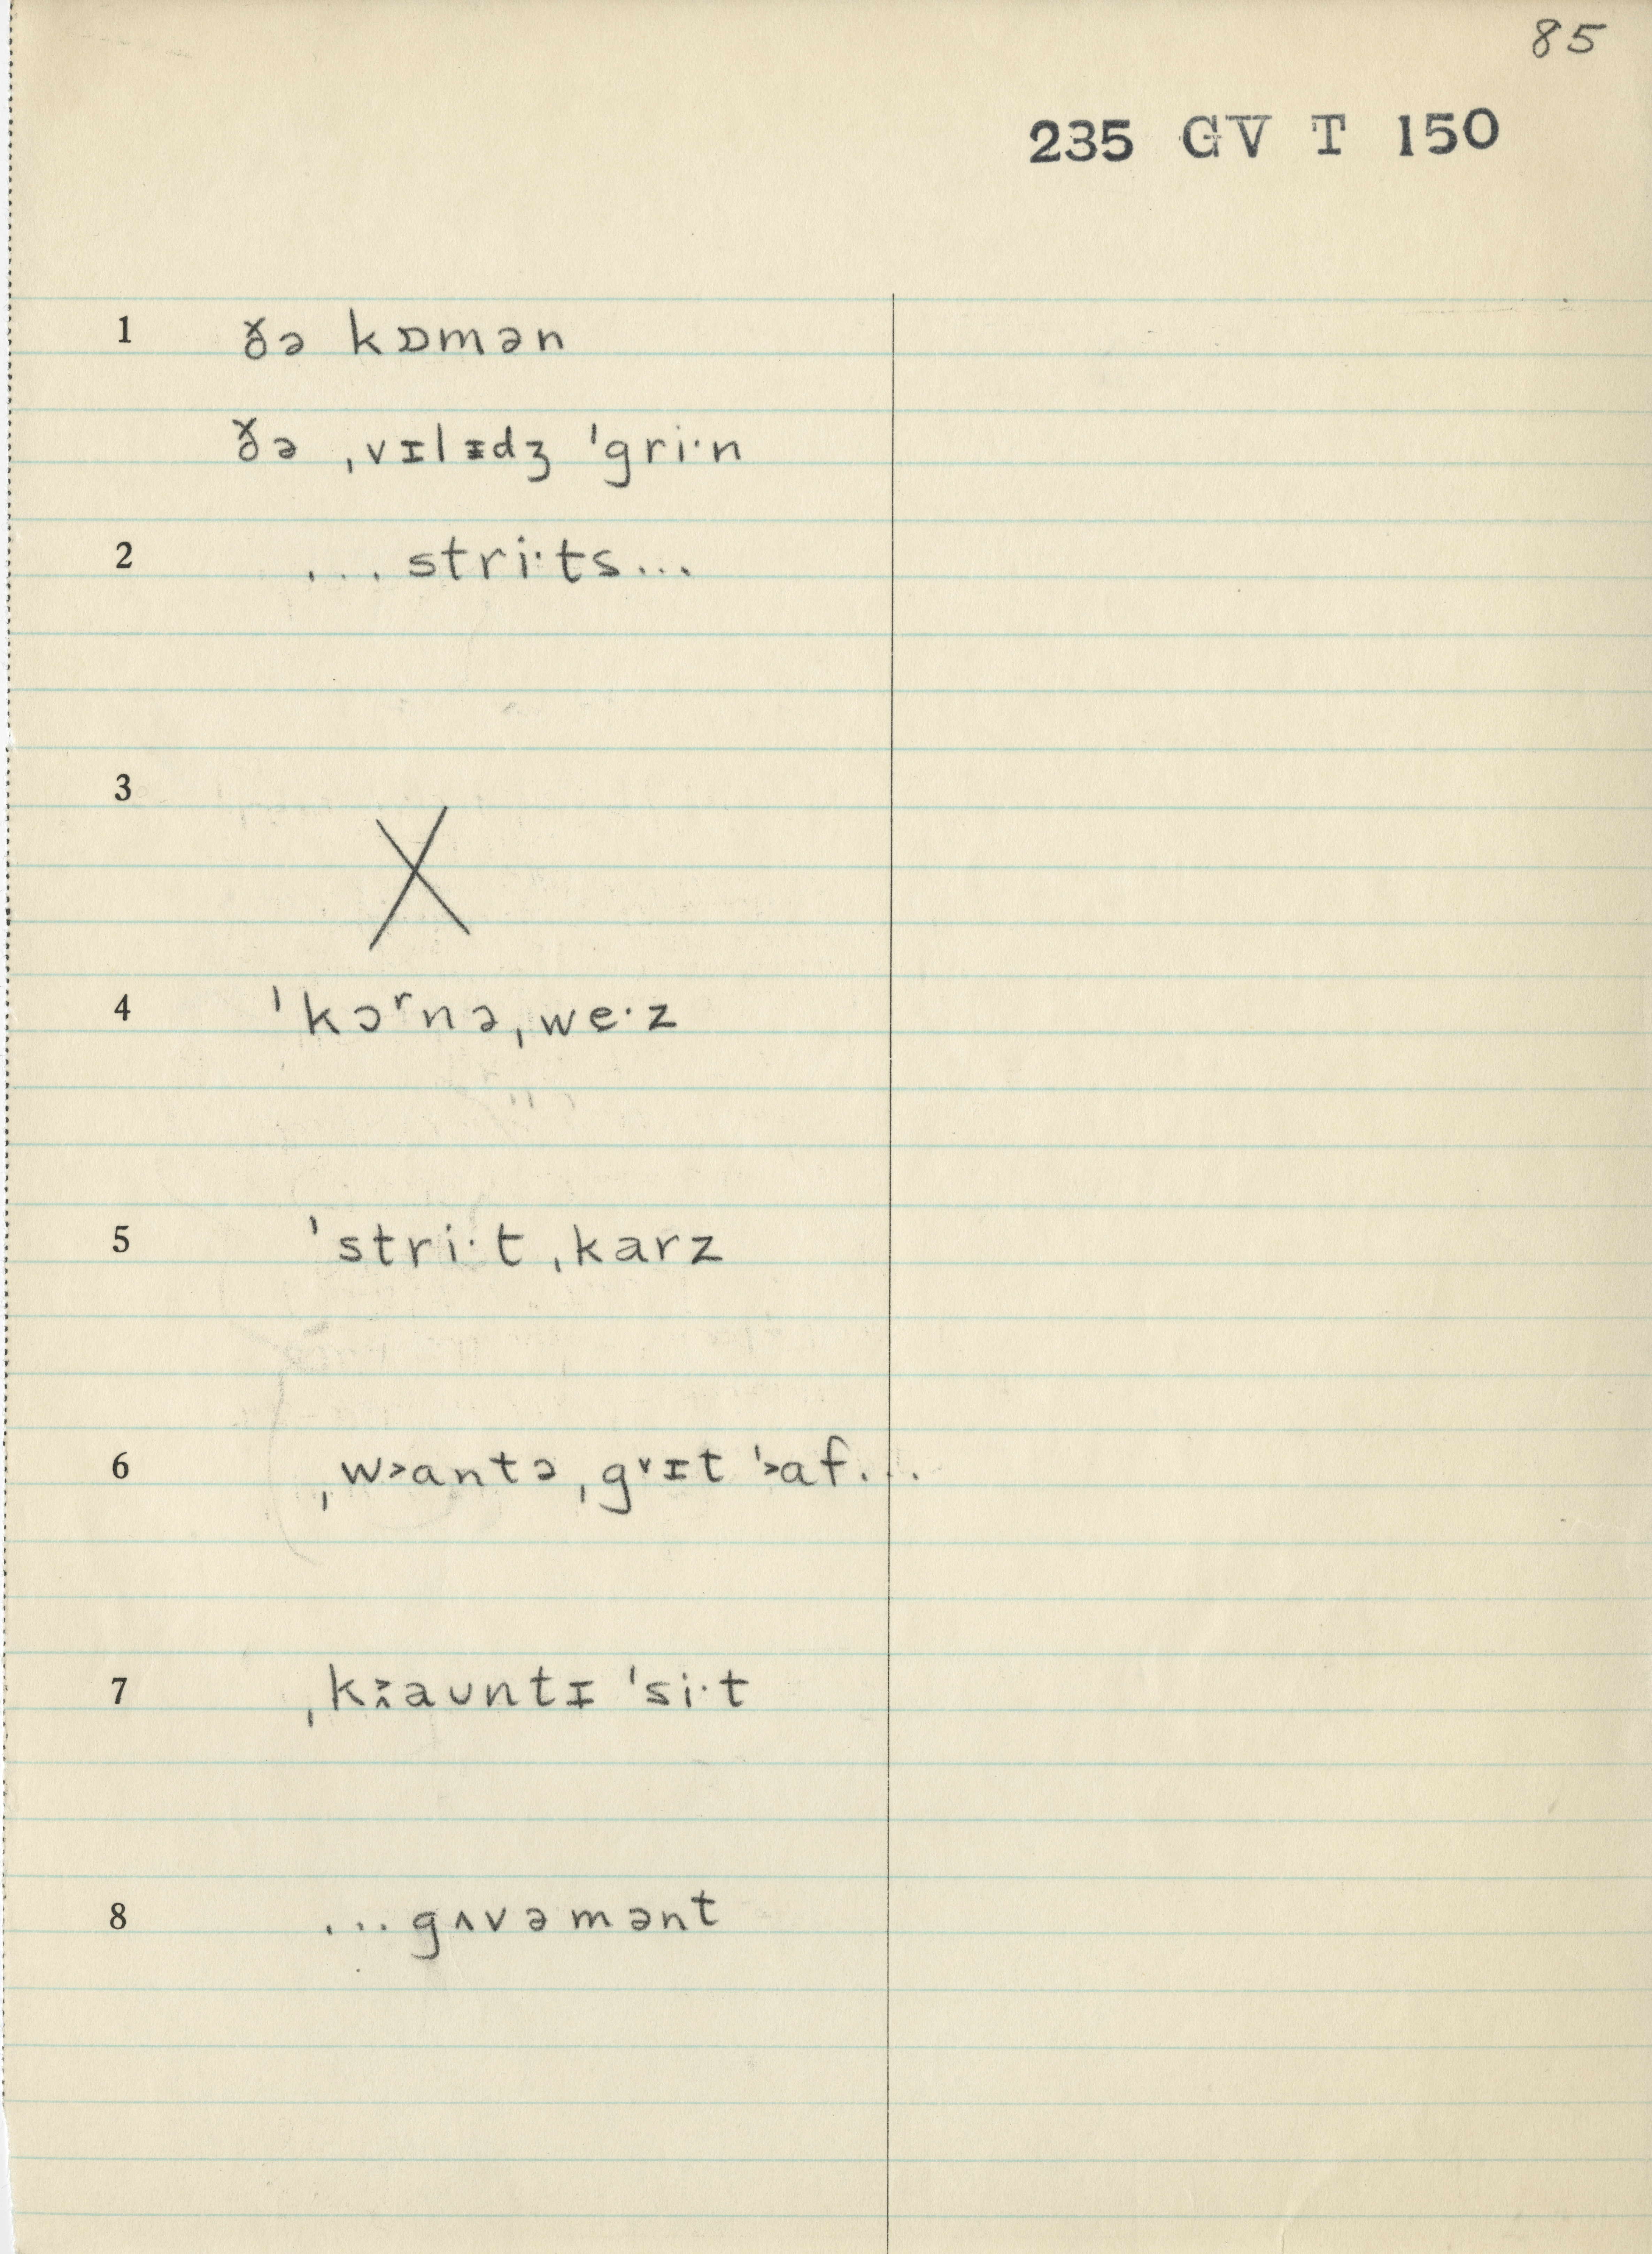 85
235 GV T 150
1 ðə kɒmən
ðə ˌvɪlᵻdʒ ˈgri·n
2 ...stri·ts...
3 X
4 ˈkɔʳnəˌwe·z
5 ˈstri·tˌkarz
6 ˌw˃antəˌg˅ɪt ˈ˃af...
7 ˌk˃̭aʊntɪ ˈsi·t
8 ...gʌvəmənt